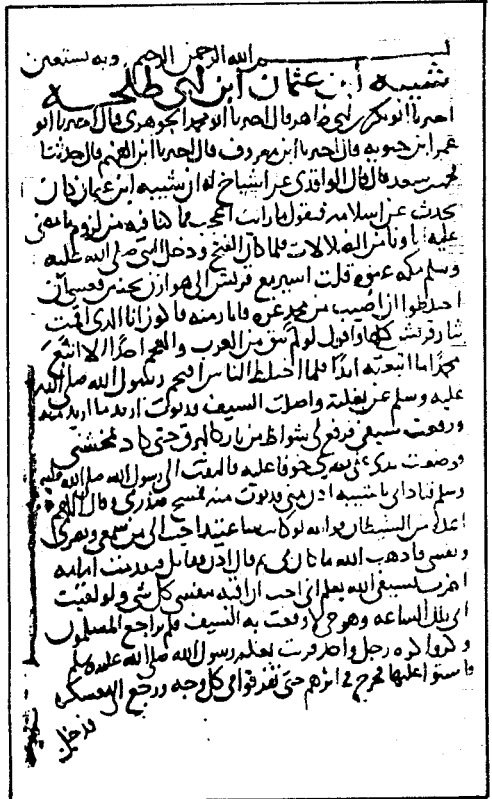 بسم الله الرحمن الرحيم وبه نستعين
شيبة ابن عثمان ابن ابي طلحة
اخبرنا ابو بكر بن ابي طاهر قال اخبرنا ابو محمد الجوهري قال اخبرنا ابو
عمر ابن حيويه قال اخبرنا ابن معروف قال اخبرنا ابن الفهم قال حدثنا
محمد بن سعد قال قال الواقدي عن اشياخ له ان شيبة ابن عثمان كان
يحدث عن اسلامه فيقول ما رايت اعجب مما كنا فيه من لزوم ما مضى
عليه اباونا من الضلالات فلما كان الفتح ودخل النبي صلى الله عليه
وسلم مكه عنوه قلت اسير مع قريش الى هوازن بحنين فعسى ان
اختلطوا ان اصيب من محمد غره فاثار منه فاكون انا الذي قمت
بثار قريش كلها واقول لو لم يبق من العرب والعجم احدا الا اتبع
محمدا ما اتبعته ابدا فلما اختلط الناس اقتحم رسول الله صلى الله
عليه وسلم عن بغلته واصلت السيف فدنوت اريد ما اريد منه
ورفعت سيفي فرفع لي شواظ من نار كالبرق حتى كاد يمحشني
فوضعت يدي على بصري خوفا عليه فالتفت الي رسول الله صلى الله عليه
وسلم فنادى يا شيبة ادن مني فدنوت منه فمسح صدري وقال اللهم
اعذه من الشيطان فوالله لهو كان ساعتيذ احب الي من سمعي وبصري
ونفسي فاذهب الله ما كان بي ثم قال ادن فقاتل فتقدمت امامه
اضرب بسيفي الله يعلم اني احب ان اقيه بنفسي كل شي ولو لقيت
ابي تلك الساعه وهو حي لاوقعت به السيف فلم تراجع المسلمون
وكروا كره رجل واحد قربت بغلة رسول الله صلى الله عليه وسلم
فاستوى عليها فخرج في اثرهم حتى تفرقوا في كل وجه ورجع الى معسكره
فدخل